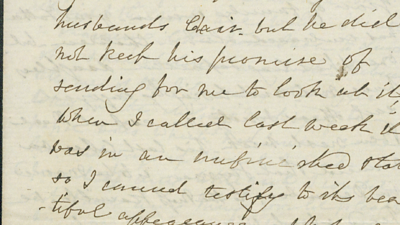 husbands Hair. but he did
not keep his promise of
sending for me to look at it,
when I called last week it
was in an unfinished stat
so I cannot testify to its bea
-tiful appearance